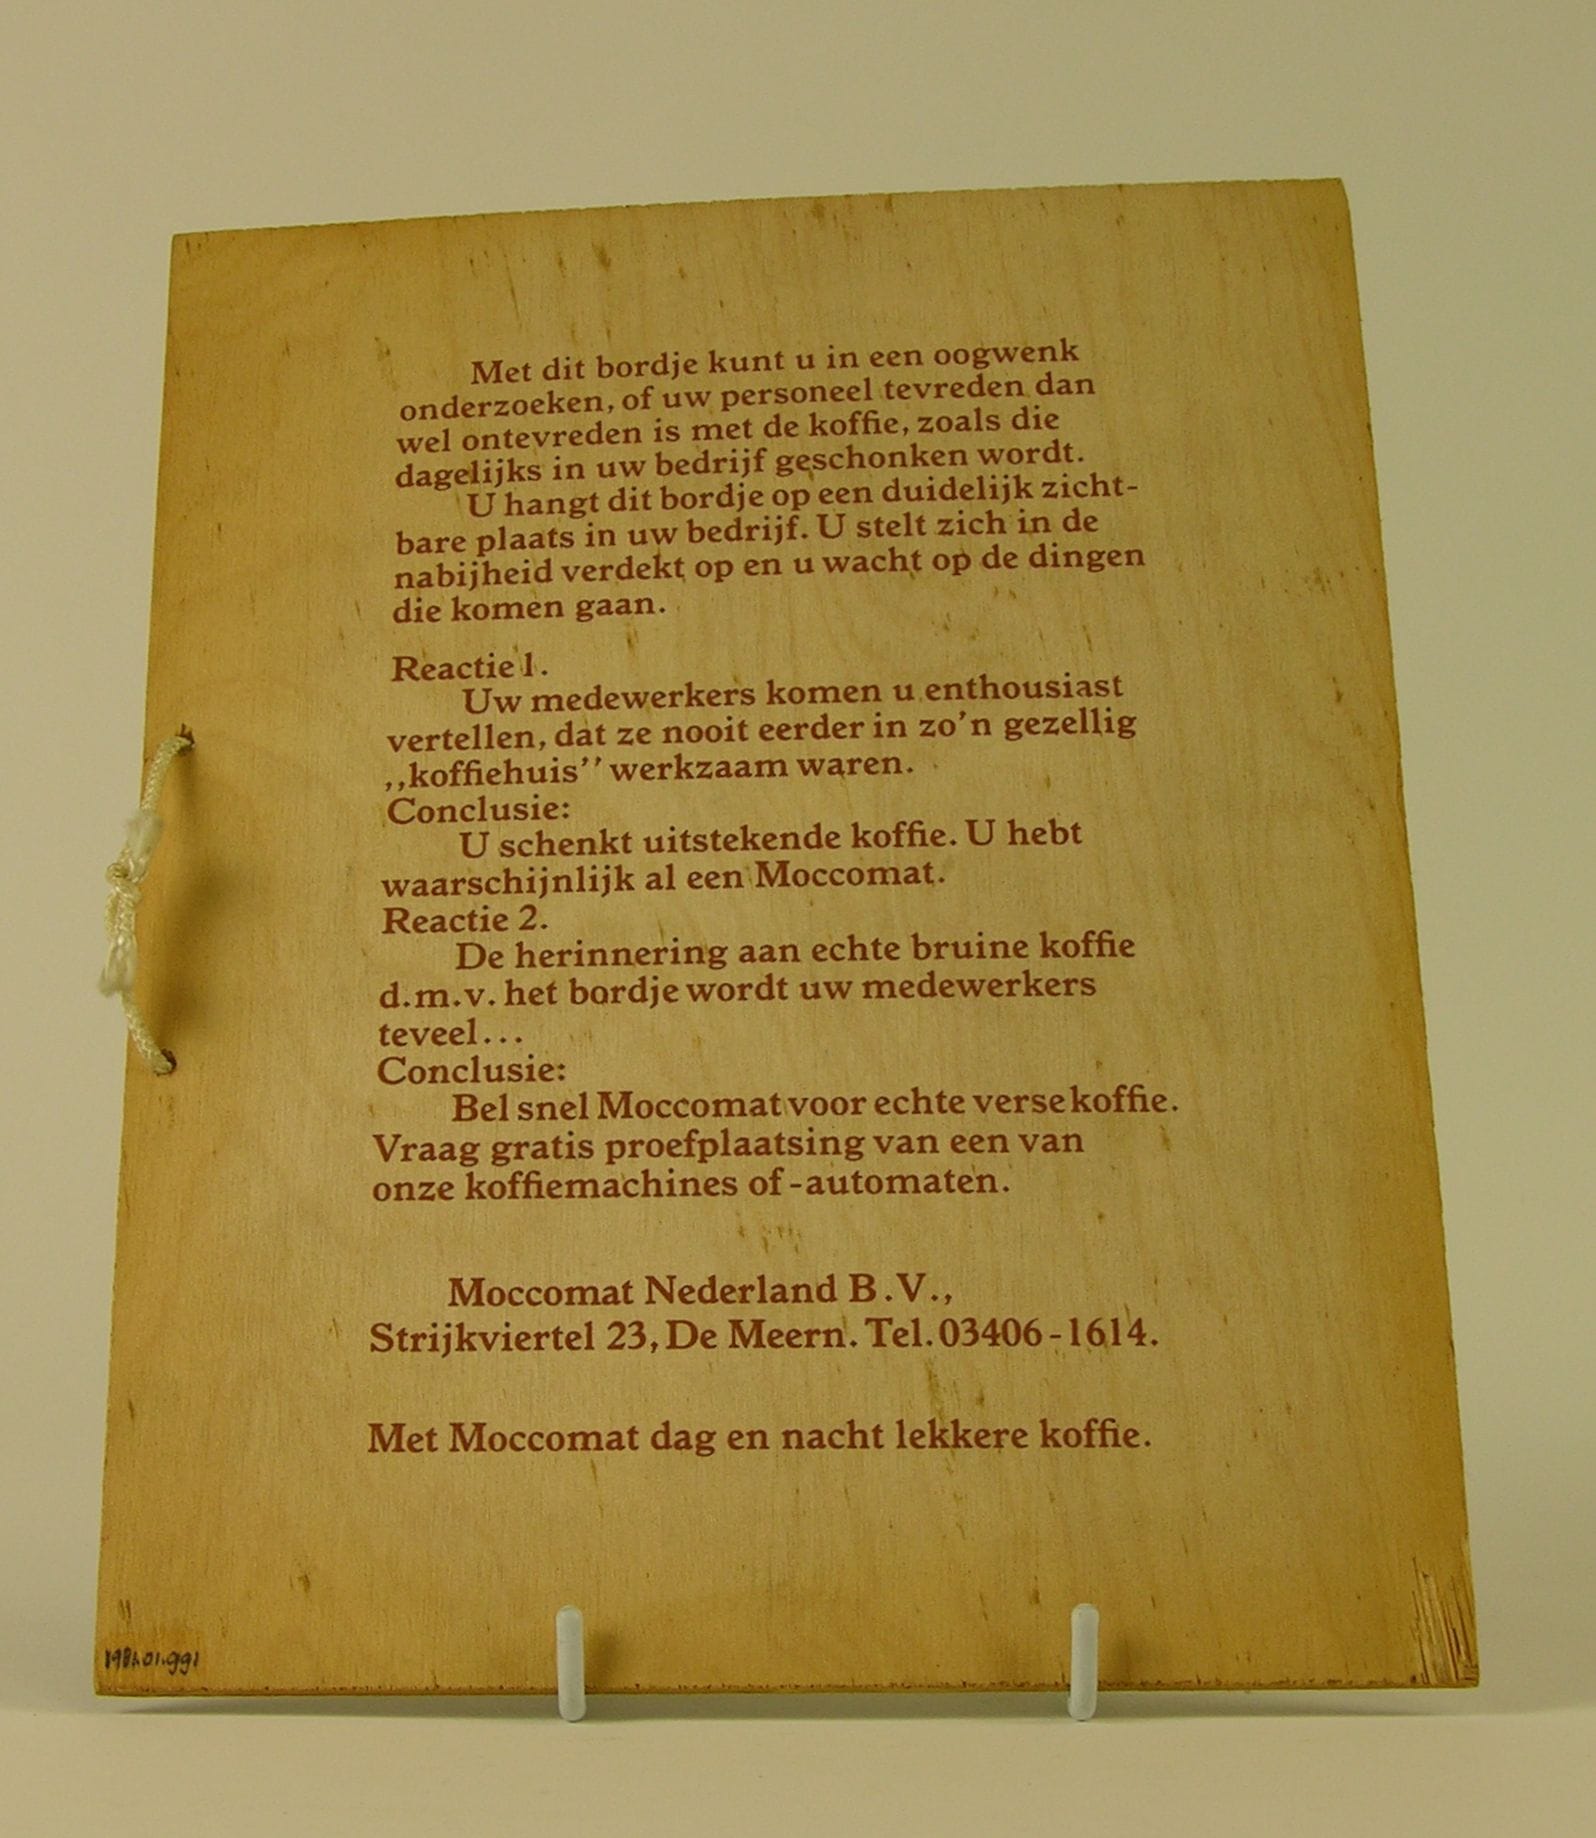 Met dit bordje kunt u in een oogwenk
onderzoeken, of uw personeel tevreden dan
wel ontevreden is met de koffie, zoals die
dagelijks in uw bedrijf geschonken wordt.
U hangt dit bordje op een duidelijk zicht-
bare plaats in uw bedrijf. U stelt zich in de
nabijheid verdekt op en u wacht op de dingen
die komen gaan.
Reactie 1.
Uw medewerkers komen u enthousiast
vertellen, dat ze nooit eerder in zo'n gezellig
,,koffiehuis'' werkzaam waren.
Conclusie:
U schenkt uitstekende koffie. U hebt
waarschijnlijk al een Moccomat.
Reactie 2.
De herinnering aan echte bruine koffie
d.m.v. het bordje wordt uw medewerkers
teveel...
Conclusie:
Bel snel Moccomat voor echte verse koffie.
Vraag gratis proefplaatsing van een van
onze koffiemachines of -automaten.
Moccomat Nederland B.V.,
Strijkviertel 23, De Meern. Tel. 03406-1614.
Met Moccomat dag en nacht lekkere koffie.